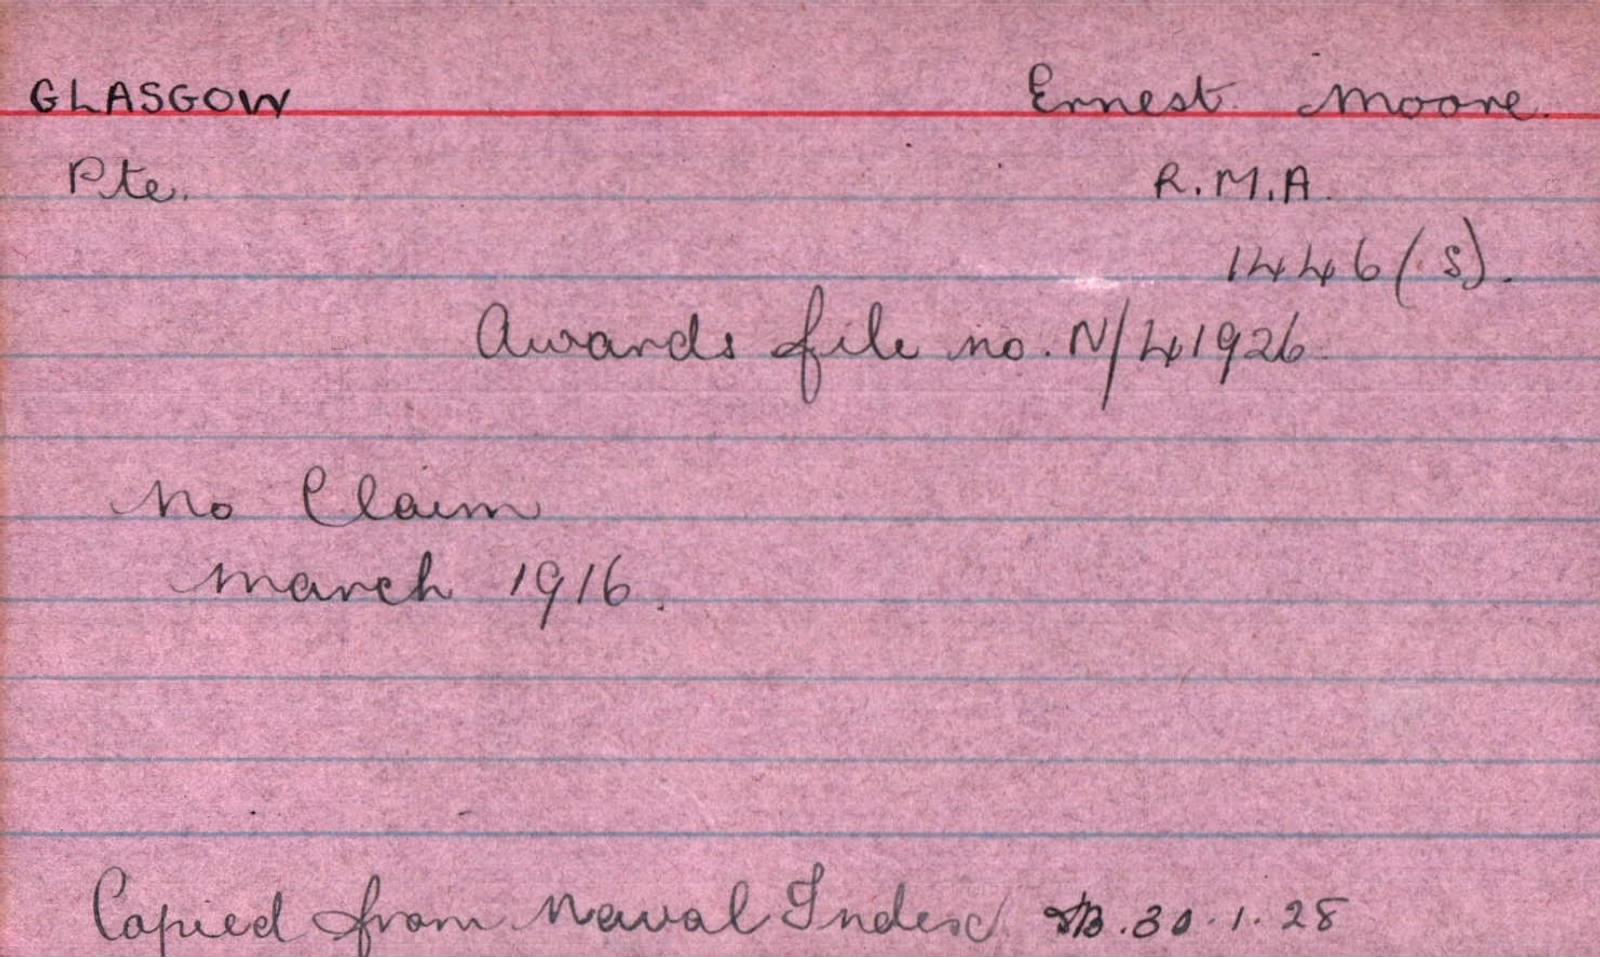 GLASGOW Ernest Moore.
Pte. R.M.A.
1446(S).
Awards file no. N/41926
No Claim
March 1916.
Copied from Naval Index 30.1.28